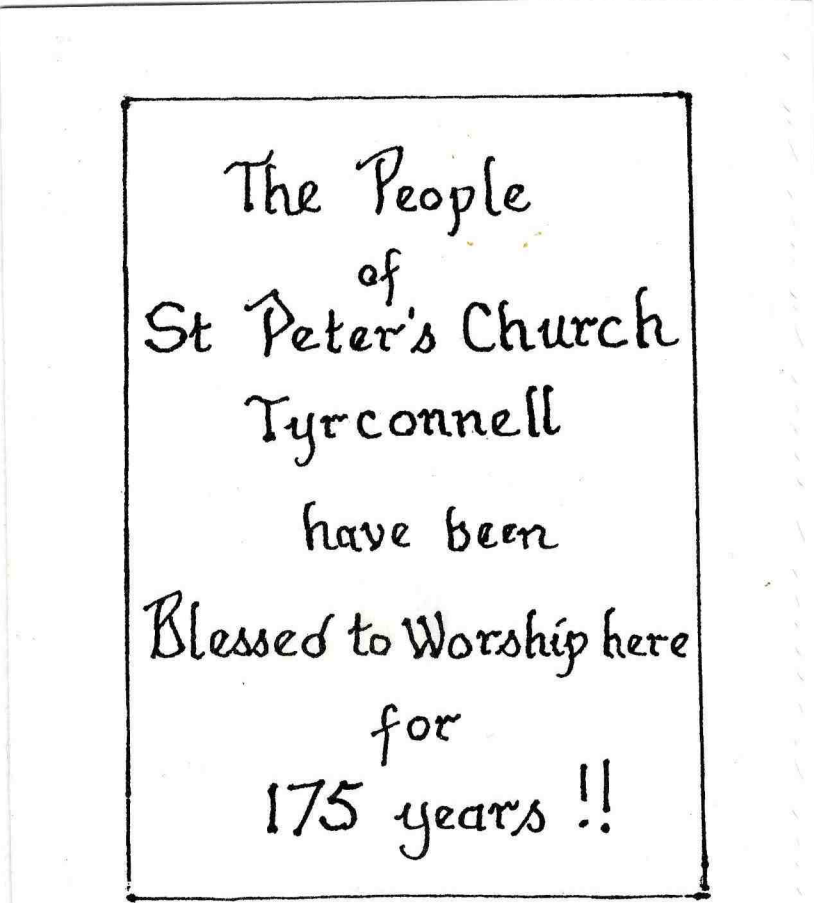 The People
of
St Peter's Church
Tyrconnell
have been
Blessed to Worship here
for
175 years !!